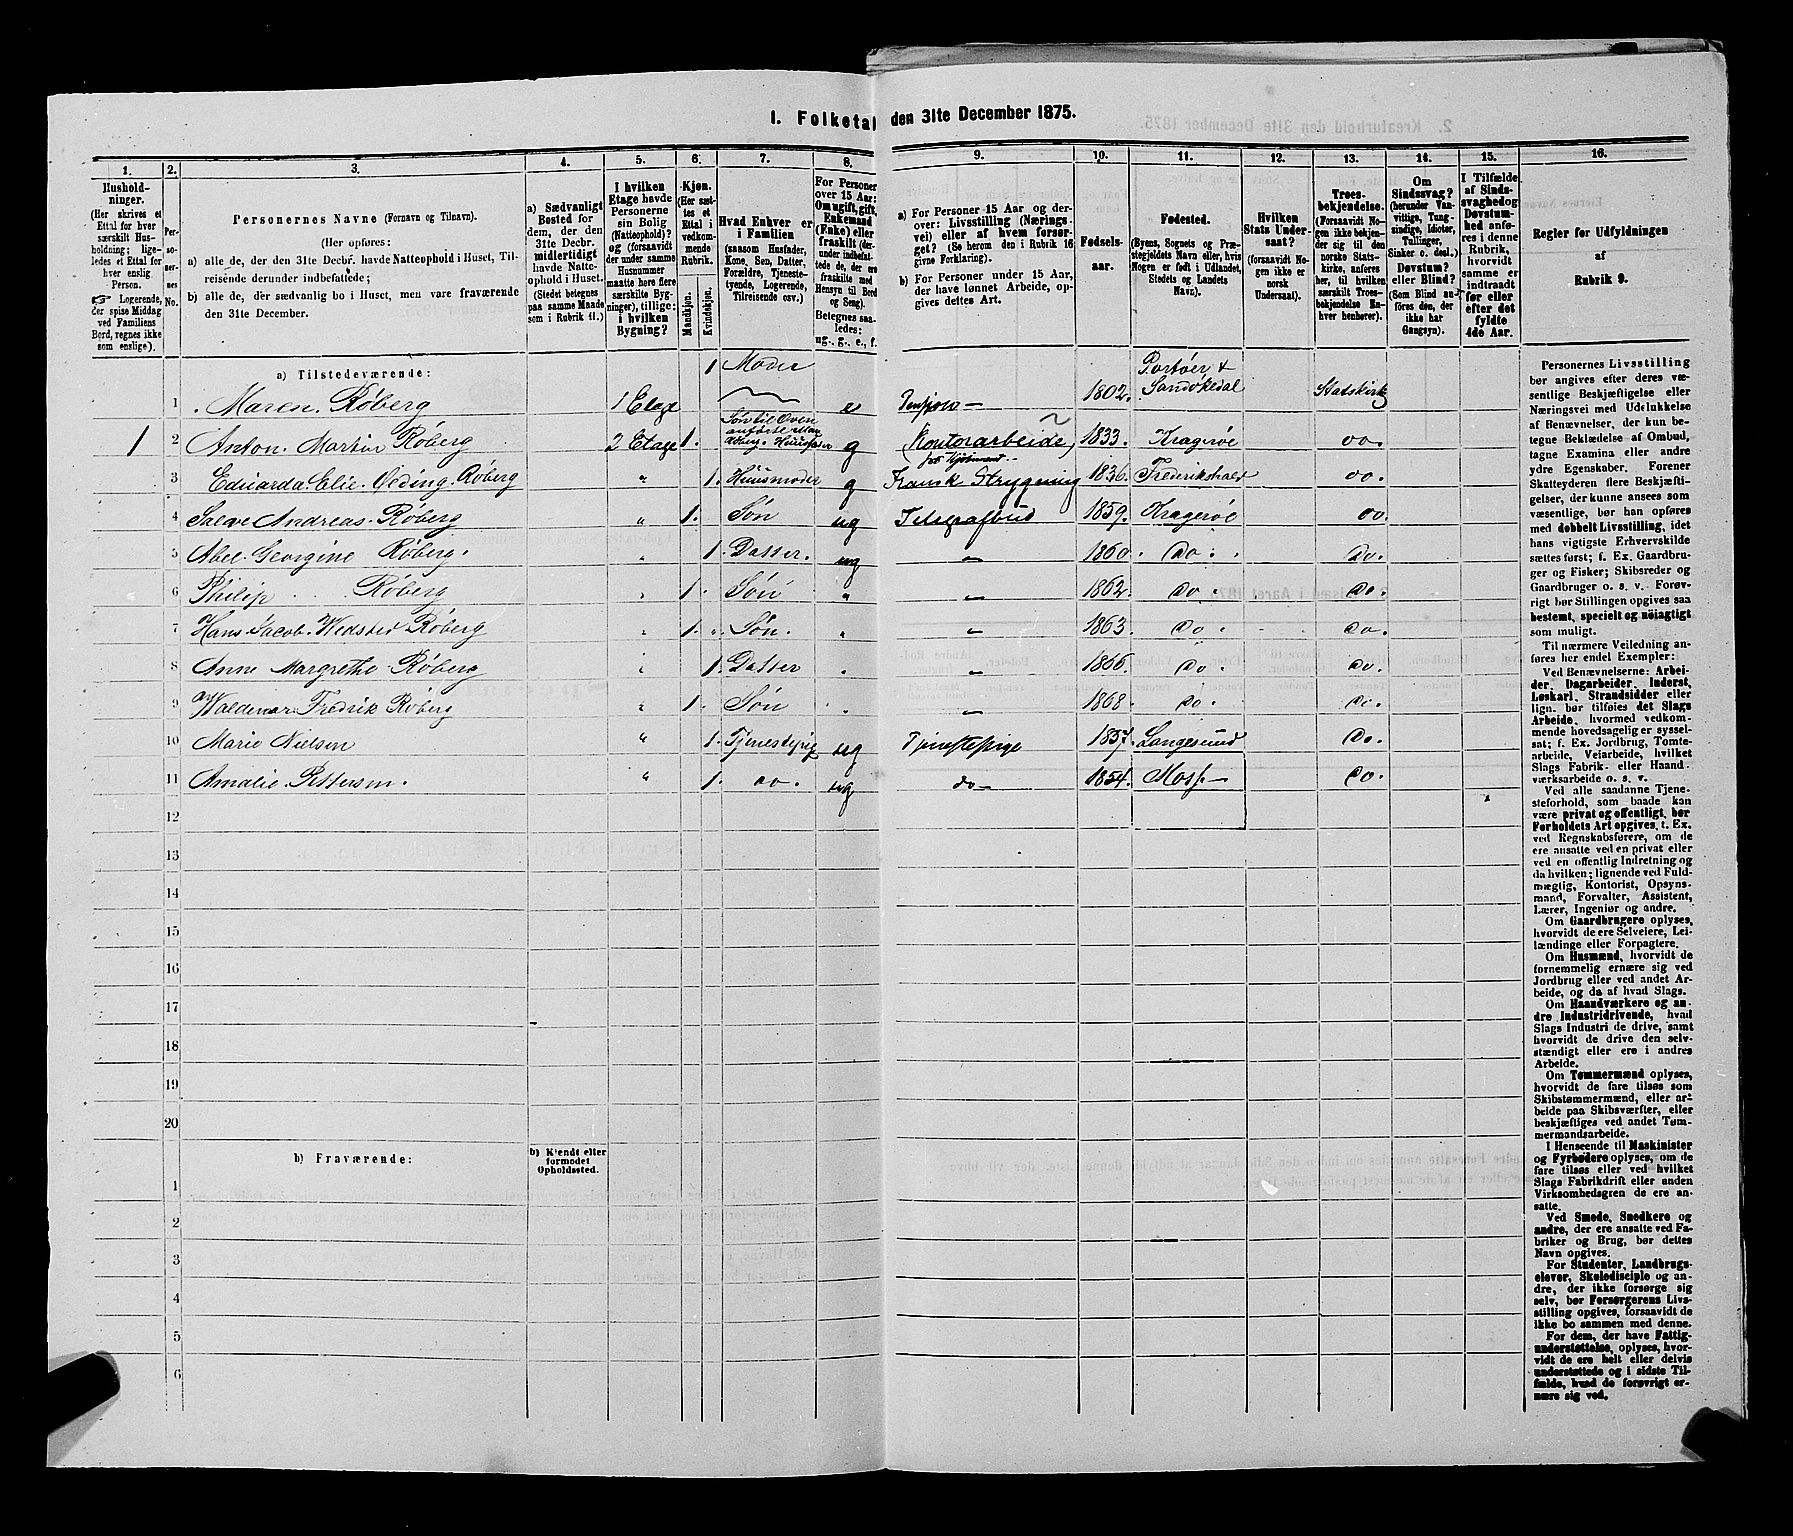 1. Folketal den 31te December 1875.
1.
2.
3.
4.
5.
6.
7.
8.
9.
10.
11.
12.
13.
14.
15.
16.
Hushold-
ninger.
(Her skrives et
Ettal for hver
særskilt Hus-
holdning; lige-
ledes et Ettal for
hver enslig
Person.
☞ Logerende,
der spise Middag
ved Familiens
Bord, regnes ikke
som enslige).
Per-
so-
ner-
nes
No.
Personernes Navne (Fornavn og Tilnavn).
(Her opføres:
a) alle de, der den 31te Decbr. havde Natteophold i Huset, Til-
reisende derunder indbefattede;
b) alle de, der sædvanlig bo i Huset, men vare fraværende
den 31te December.
a) Sædvanligt
Bosted for
dem, der den
31te Decbr.
midlertidigt
havde Natte-
ophold i Huset.
(Stedet betegnes
paa samme Maade
som i Rubrik 11.)
I hvilken
Etage havde
Personerne
sin Bolig
(Natteophold)?
og (forsaavidt
der under samme
Husnummer
maatte høre flere
særskilte Byg-
ninger), tillige:
i hvilken
Bygning?
Kjøn.
(Her sæt-
tes et
Ettal i
vedkom-
mende
Rubrik.
Mandkjøn.
Kvindekjøn.
Hvad Enhver er
i Familien
(saasom Husfader,
Kone, Søn, Datter,
Forældre, Tjeneste-
tyende, Logerende,
Tilreisende osv.)
For Personer
over 15 Aar:
Om ugift, gift,
Enkemand
(Enke) eller
fraskilt (der-
under indbefat-
tede de, der ere
fraskilte med
Hensyn til Bord
og Seng).
Betegnes saa-
ledes:
ug., g., e., f.
a) For Personer 15 Aar og der-
over: Livsstilling (Nærings-
vei) eller af hvem forsør-
get? (Se herom den i Rubrik 16
givne Forklaring).
b) For Personer under 15 Aar,
der have lønnet Arbeide, op-
gives dettes Art.
Fødsels-
aar.
Fødested.
(Byens, Sognets og Præ-
stegjeldets Navn eller, hvis
Nogen er født i Udlandet,
Stedets og Landets
Navn).
Hvilken
Stats Under-
saat?
(forsaavidt No-
gen ikke er
norsk
Undersaat).
Troes-
bekjendelse.
(Forsaavidt No-
gen ikke bekjen-
der sig til den
norske Stats-
kirke, anføres
her, til hvilken
særskilt Troes-
bekjendelse En-
hver henhører).
Om
Sindssvag?
(herunder Van-
vittige, Tung-
sindige, Idioter,
Tullinger,
Sinker o. desl.)
Døvstum?
eller Blind?
(Som Blind an-
føres den, der
ikke har
Gangsyn).
I Tilfælde
af Sinds-
svaghed og
Døvstum-
hed anfø-
res i denne
Rubrik,
hvorvidt
samme er
indtraadt
før eller
efter det
fyldte
4de Aar.
Regler for Udfyldningen
af
Rubrik 9.
a) Tilstedeværende:
1 Maren Røberg 1 Etage 1 Moder e 1802. Sandøkedal Statskirk
1 2 Anton Martin Røberg 2 Etage 1. g Kontorarbeide 1833. Kragerøe do.
3 Eduarda Elie Øeding Røberg " 1. Huusmoder g Fransk Strygning 1836. Frederikshald do.
4 Salve Andreas Røberg " 1. Søn ug Telegrafbud 1859. Kragerøe do
5 Abel Georgine Røberg. " 1. Datter. ug 1860. do. do.
6 Philip Røberg " 1. Søn " 1862. do. do.
7 Hans Jacob Wedsted Røberg " 1. Søn. " 1863. do do.
8 Anne Margrethe Røberg " 1. Datter " 1866. do. do.
9 Waldemar Fredrik Røberg " 1. Søn " 1868. do. do.
10 Marie Nielsen " 1. ug Tjenestepige 1857. Langesund do.
11 Amalie Pettersen. " 1. do. ug do 1854. Moss do.
12
13
14
15
16
17
18
19
20
b) Fraværende:
b) Kjendt eller
formodet
Opholdssted.
1
2
3
4
5
6
Personernes Livsstilling
bør angives efter deres væ-
sentlige Beskjæftigelse eller
Næringsvei med Udelukkelse
af Benævnelser, der kun be-
tegne Beklædelse af Ombud,
tagne Examina eller andre
ydre Egenskaber. Forener
Skatteyderen flere Beskjæfti-
gelser, der kunne ansees som
væsentlige, bør han opføres
med dobbelt Livsstilling, idet
hans vigtigste Erhvervskilde
sættes først; f. Ex. Gaardbru-
ger og Fisker; Skibsreder og
Gaardbruger o. s. v. Forøv-
rigt bør Stillingen opgives saa
bestemt, specielt og nøiagtigt
som muligt.
Til nærmere Veiledning an-
føres her endel Exempler:
Ved Benævnelserne: Arbei-
der, Dagarbeider, Inderst,
Løskarl, Strandsidder eller
lign. bør tilføies det Slags
Arbeide, hvormed vedkom-
mende hovedsagelig er syssel-
sat; f. Ex. Jordbrug, Tomte-
arbeide, Veiarbeide, hvilket
Slags Fabrik- eller Haand-
værksarbeide o. s. v.
Ved alle saadanne Tjene-
steforhold, som baade kan
være privat og offentligt, bør
Forholdets Art opgives, t. Ex.
ved Regnskabsførere, om de
ere ansatte ved en privat eller
ved en offentlig Indretning og
da hvilken; lignende ved Fuld-
mægtig, Kontorist, Opsyns-
mand, Forvalter, Assistent,
Lærer, Ingeniør og andre.
Om Gaardbrugere oplyses,
hvorvidt de ere Selveiere, Lei-
lændinge eller Forpagtere.
Om Husmænd, hvorvidt de
fornemmelig ernære sig ved
Jordbrug eller ved andet Ar-
beide, og da af hvad Slags.
Om Haandværkere og an-
dre Industridrivende, hvad
Slags Industri de drive, samt
hvorvidt de drive den selv-
stændigt eller ere i andres
Arbeide.
Om Tømmermænd oplyses,
hvorvidt de fare tilsøs som
Skibstømmermænd, eller ar-
beide paa Skibsværfter, eller
beskjæftiges ved andet Tøm-
mermandsarbeide.
I Henseende til Maskinister
og Fyrbødere oplyses, om de
fare tilsøs eller ved hvilket
Slags Fabrikdrift eller anden
Virksomhedsgren de ere an-
satte.
Ved Smede, Snedkere og
andre, der ere ansatte ved Fa-
briker og Brug, bør dettes
Navn opgives.
For Studenter, Landbrugs-
elever, Skoledisciple og an-
dre, der ikke forsørge sig
selv, bør Forsørgerens Livs-
stilling opgives, forsaavidt de
ikke bo sammen med denne.
For dem, der have Fattig-
understøttelse, oplyses, hvor-
vidt de ere helt eller delvis
understøttede og i sidste Til-
fælde, hvad de forøvrigt er-
nære sig ved.